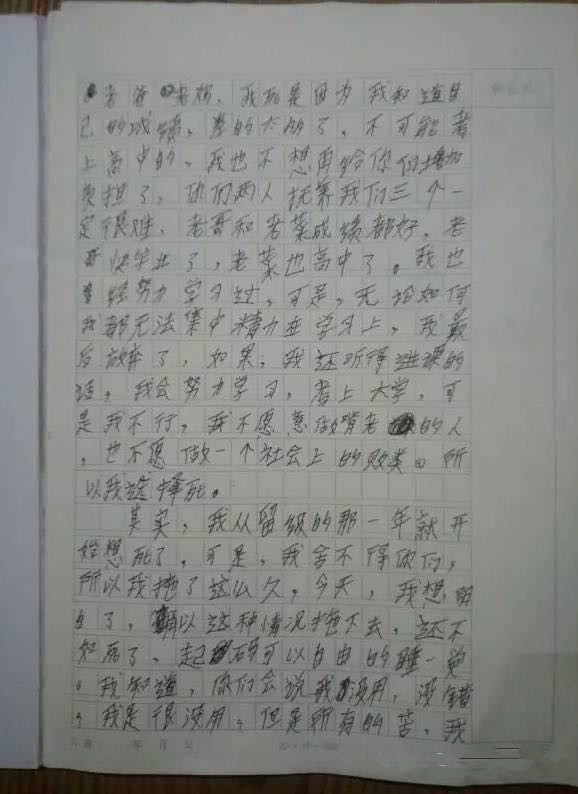 老爸老妈，我死是因为我知道自
己的成绩，差的太多了，不可能考
上高中的，我也不想再给你们增加
负担了，你们两人抚养我们三个一
定很难，老哥和老菜成绩都好，老
哥快毕业了，老菜也高中了。我也
经努力学习过，可是，无论如何
我都无法集中精力在学习上，我最
后放弃了，如果，我还听得进课的
话，我会努力学习，考上大学，可
是我不行，我不愿意做啃老的人
，也不愿做一个社会上的败类。所
以我选择死。
其实，我从留级的那一年就开
始想死了，可是，我舍不得你们，
所以我拖了这么久，今天，我想明
白了，以这种情况拖下去，还不
如死了，起码可以自由的睡一觉
。我知道，你们会说我没用，没错
，我是很没用，但是所有的苦，我
年 月 日